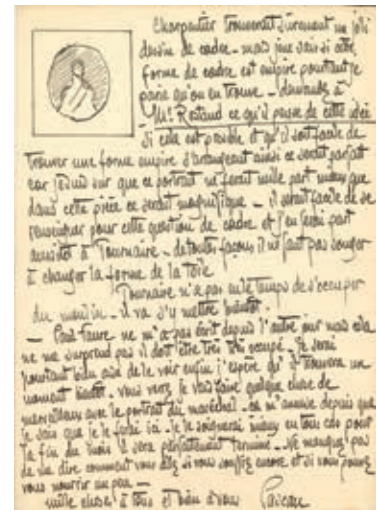 Charpentier trouverait sûrement un joli
dessin de cadre - mais je ne sais si cette
forme de cadre est empire pourtant je
parie qu'on en trouve - demandez à
Mr. Rostand ce qu'il pense de cette idée
Si cela est possible et qu'il soit facile de
trouver une forme empire s'arrangeant ainsi ce serait parfait
car je suis sur que ce portrait ne ferait nulle part mieux que
dans cette pièce ce serait magnifique - il serait facile de se
renseigner pour cette question de cadre et j'en ferai part
aussitôt à Tournaire - de toutes façons il ne faut pas songer
à changer la forme de la toile
Tournaire n'a pas eu le temps de s'occuper
du moulin - il va s'y mettre bientôt.
- Paul Faure ne m'a pas écrit depuis l'autre jour mais cela
ne me surprend pas il doit être très très occupé - je serai
pourtant bien aisé de le voir enfin j'espère qu'il trouvera un
moment bientôt - vous verrez je vais faire quelque chose de
merveilleux avec le portrait du maréchal - ça m'amuse depuis que
je sais que je le ferai ici - je le soignerai mieux en tous cas pour
la fin du mois il sera parfaitement terminé - Ne manquez pas
de me dire comment vous allez si vous souffrez encore et si vous pouvez
vous nourrir un peu -
mille choses à tous et bien à vous Pascau